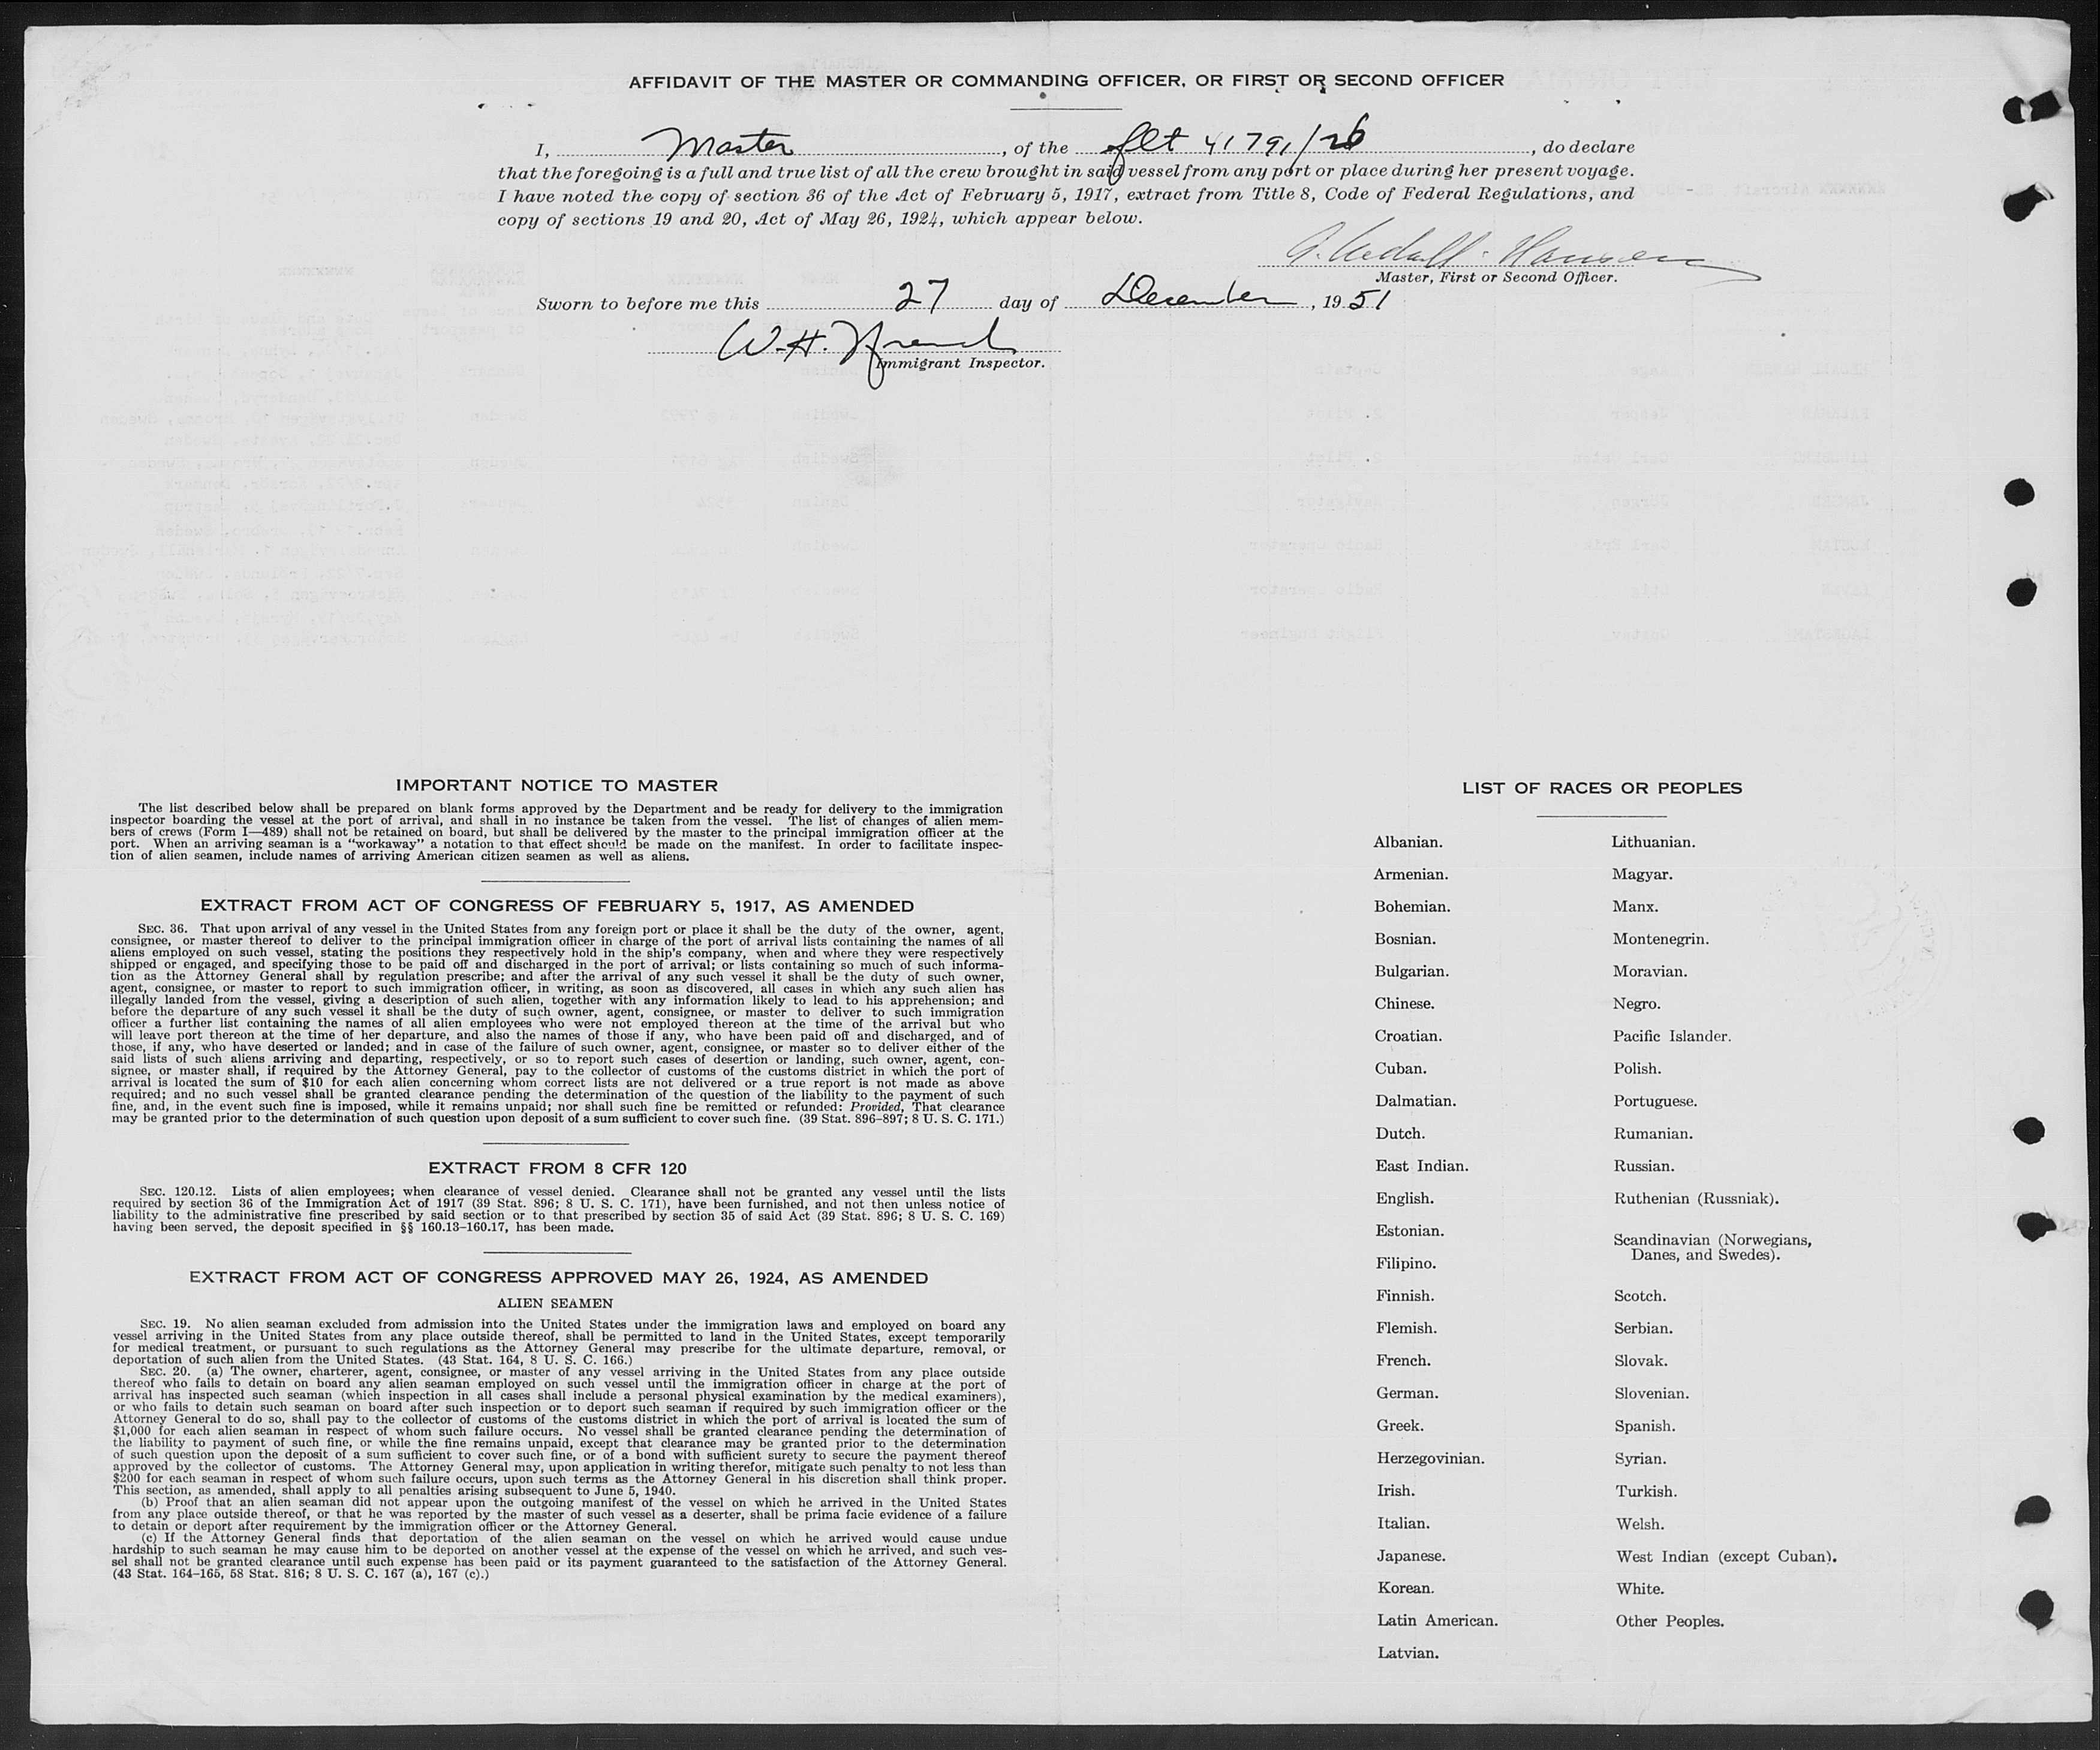 AFFIDAVIT OF THE MASTER OR COMMANDING OFFICER, OR FIRST OR SECOND OFFICER
I, Master, of the flt 41791/26, do declare
that the foregoing is a full and true list of all the crew brought in said vessel from any port or place during her present voyage.
I have noted the copy of section 36 of the Act of February 5, 1917, extract from Title 8, Code of Federal Regulations, and
copy of sections 19 and 20, Act of May 26, 1924, which appear below.
Hansen
Master, First or Second Officer.
Sworn to before me this 27 day of December, 1951
W. H.
Immigrant Inspector.
IMPORTANT NOTICE TO MASTER
The list described below shall be prepared on blank forms approved by the Department and be ready for delivery to the immigration
inspector boarding the vessel at the port of arrival, and shall in no instance be taken from the vessel. The list of changes of alien mem-
bers of crews (Form I—489) shall not be retained on board, but shall be delivered by the master to the principal immigration officer at the
port. When an arriving seaman is a "workaway" a notation to that effect should be made on the manifest. In order to facilitate inspec-
tion of alien seamen, include names of arriving American citizen seamen as well as aliens.
EXTRACT FROM ACT OF CONGRESS OF FEBRUARY 5, 1917, AS AMENDED
SEC. 36. That upon arrival of any vessel in the United States from any foreign port or place it shall be the duty of the owner, agent,
consignee, or master thereof to deliver to the principal immigration officer in charge of the port of arrival lists containing the names of all
aliens employed on such vessel, stating the positions they respectively hold in the ship's company, when and where they were respectively
shipped or engaged, and specifying those to be paid off and discharged in the port of arrival; or lists containing so much of such informa-
tion as the Attorney General shall by regulation prescribe; and after the arrival of any such vessel it shall be the duty of such owner,
agent, consignee, or master to report to such immigration officer, in writing, as soon as discovered, all cases in which any such alien has
illegally landed from the vessel, giving a description of such alien, together with any information likely to lead to his apprehension; and
before the departure of any such vessel it shall be the duty of such owner, agent, consignee, or master to deliver to such immigration
officer a further list containing the names of all alien employees who were not employed thereon at the time of the arrival but who
will leave port thereon at the time of her departure, and also the names of those if any, who have been paid off and discharged, and of
those, if any, who have deserted or landed; and in case of the failure of such owner, agent, consignee, or master so to deliver either of the
said lists of such aliens arriving and departing, respectively, or so to report such cases of desertion or landing, such owner, agent, con-
signee, or master shall, if required by the Attorney General, pay to the collector of customs of the customs district in which the port of
arrival is located the sum of $10 for each alien concerning whom correct lists are not delivered or a true report is not made as above
required; and no such vessel shall be granted clearance pending the determination of the question of the liability to the payment of such
fine, and, in the event such fine is imposed, while it remains unpaid; nor shall such fine be remitted or refunded: Provided, That clearance
may be granted prior to the determination of such question upon deposit of a sum sufficient to cover such fine. (39 Stat. 896–897; 8 U. S. C. 171.)
EXTRACT FROM 8 CFR 120
SEC. 120.12. Lists of alien employees; when clearance of vessel denied. Clearance shall not be granted any vessel until the lists
required by section 36 of the Immigration Act of 1917 (39 Stat. 896; 8 U. S. C. 171), have been furnished, and not then unless notice of
liability to the administrative fine prescribed by said section or to that prescribed by section 35 of said Act (39 Stat. 896; 8 U. S. C. 169)
having been served, the deposit specified in §§ 160.13–160.17, has been made.
EXTRACT FROM ACT OF CONGRESS APPROVED MAY 26, 1924, AS AMENDED
ALIEN SEAMEN
SEC. 19. No alien seaman excluded from admission into the United States under the immigration laws and employed on board any
vessel arriving in the United States from any place outside thereof, shall be permitted to land in the United States, except temporarily
for medical treatment, or pursuant to such regulations as the Attorney General may prescribe for the ultimate departure, removal, or
deportation of such alien from the United States. (43 Stat. 164, 8 U. S. C. 166.)
SEC. 20. (a) The owner, charterer, agent, consignee, or master of any vessel arriving in the United States from any place outside
thereof who fails to detain on board any alien seaman employed on such vessel until the immigration officer in charge at the port of
arrival has inspected such seaman (which inspection in all cases shall include a personal physical examination by the medical examiners),
or who fails to detain such seaman on board after such inspection or to deport such seaman if required by such immigration officer or the
Attorney General to do so, shall pay to the collector of customs of the customs district in which the port of arrival is located the sum of
$1,000 for each alien seaman in respect of whom such failure occurs. No vessel shall be granted clearance pending the determination of
the liability to payment of such fine, or while the fine remains unpaid, except that clearance may be granted prior to the determination
of such question upon the deposit of a sum sufficient to cover such fine, or of a bond with sufficient surety to secure the payment thereof
approved by the collector of customs. The Attorney General may, upon application in writing therefor, mitigate such penalty to not less than
$200 for each seaman in respect of whom such failure occurs, upon such terms as the Attorney General in his discretion shall think proper.
This section, as amended, shall apply to all penalties arising subsequent to June 5, 1940.
(b) Proof that an alien seaman did not appear upon the outgoing manifest of the vessel on which he arrived in the United States
from any place outside thereof, or that he was reported by the master of such vessel as a deserter, shall be prima facie evidence of a failure
to detain or deport after requirement by the immigration officer or the Attorney General.
(c) If the Attorney General finds that deportation of the alien seaman on the vessel on which he arrived would cause undue
hardship to such seaman he may cause him to be deported on another vessel at the expense of the vessel on which he arrived, and such ves-
sel shall not be granted clearance until such expense has been paid or its payment guaranteed to the satisfaction of the Attorney General.
(43 Stat. 164–165, 58 Stat. 816; 8 U. S. C. 167 (a), 167 (c).)
LIST OF RACES OR PEOPLES
Albanian.
Armenian.
Bohemian.
Bosnian.
Bulgarian.
Chinese.
Croatian.
Cuban.
Dalmatian.
Dutch.
East Indian.
English.
Estonian.
Filipino.
Finnish.
Flemish.
French.
German.
Greek.
Herzegovinian.
Irish.
Italian.
Japanese.
Korean.
Latin American.
Latvian.
Lithuanian.
Magyar.
Manx.
Montenegrin.
Moravian.
Negro.
Pacific Islander.
Polish.
Portuguese.
Rumanian.
Russian.
Ruthenian (Russniak).
Scandinavian (Norwegians,
Danes, and Swedes).
Scotch.
Serbian.
Slovak.
Slovenian.
Spanish.
Syrian.
Turkish.
Welsh.
West Indian (except Cuban).
White.
Other Peoples.